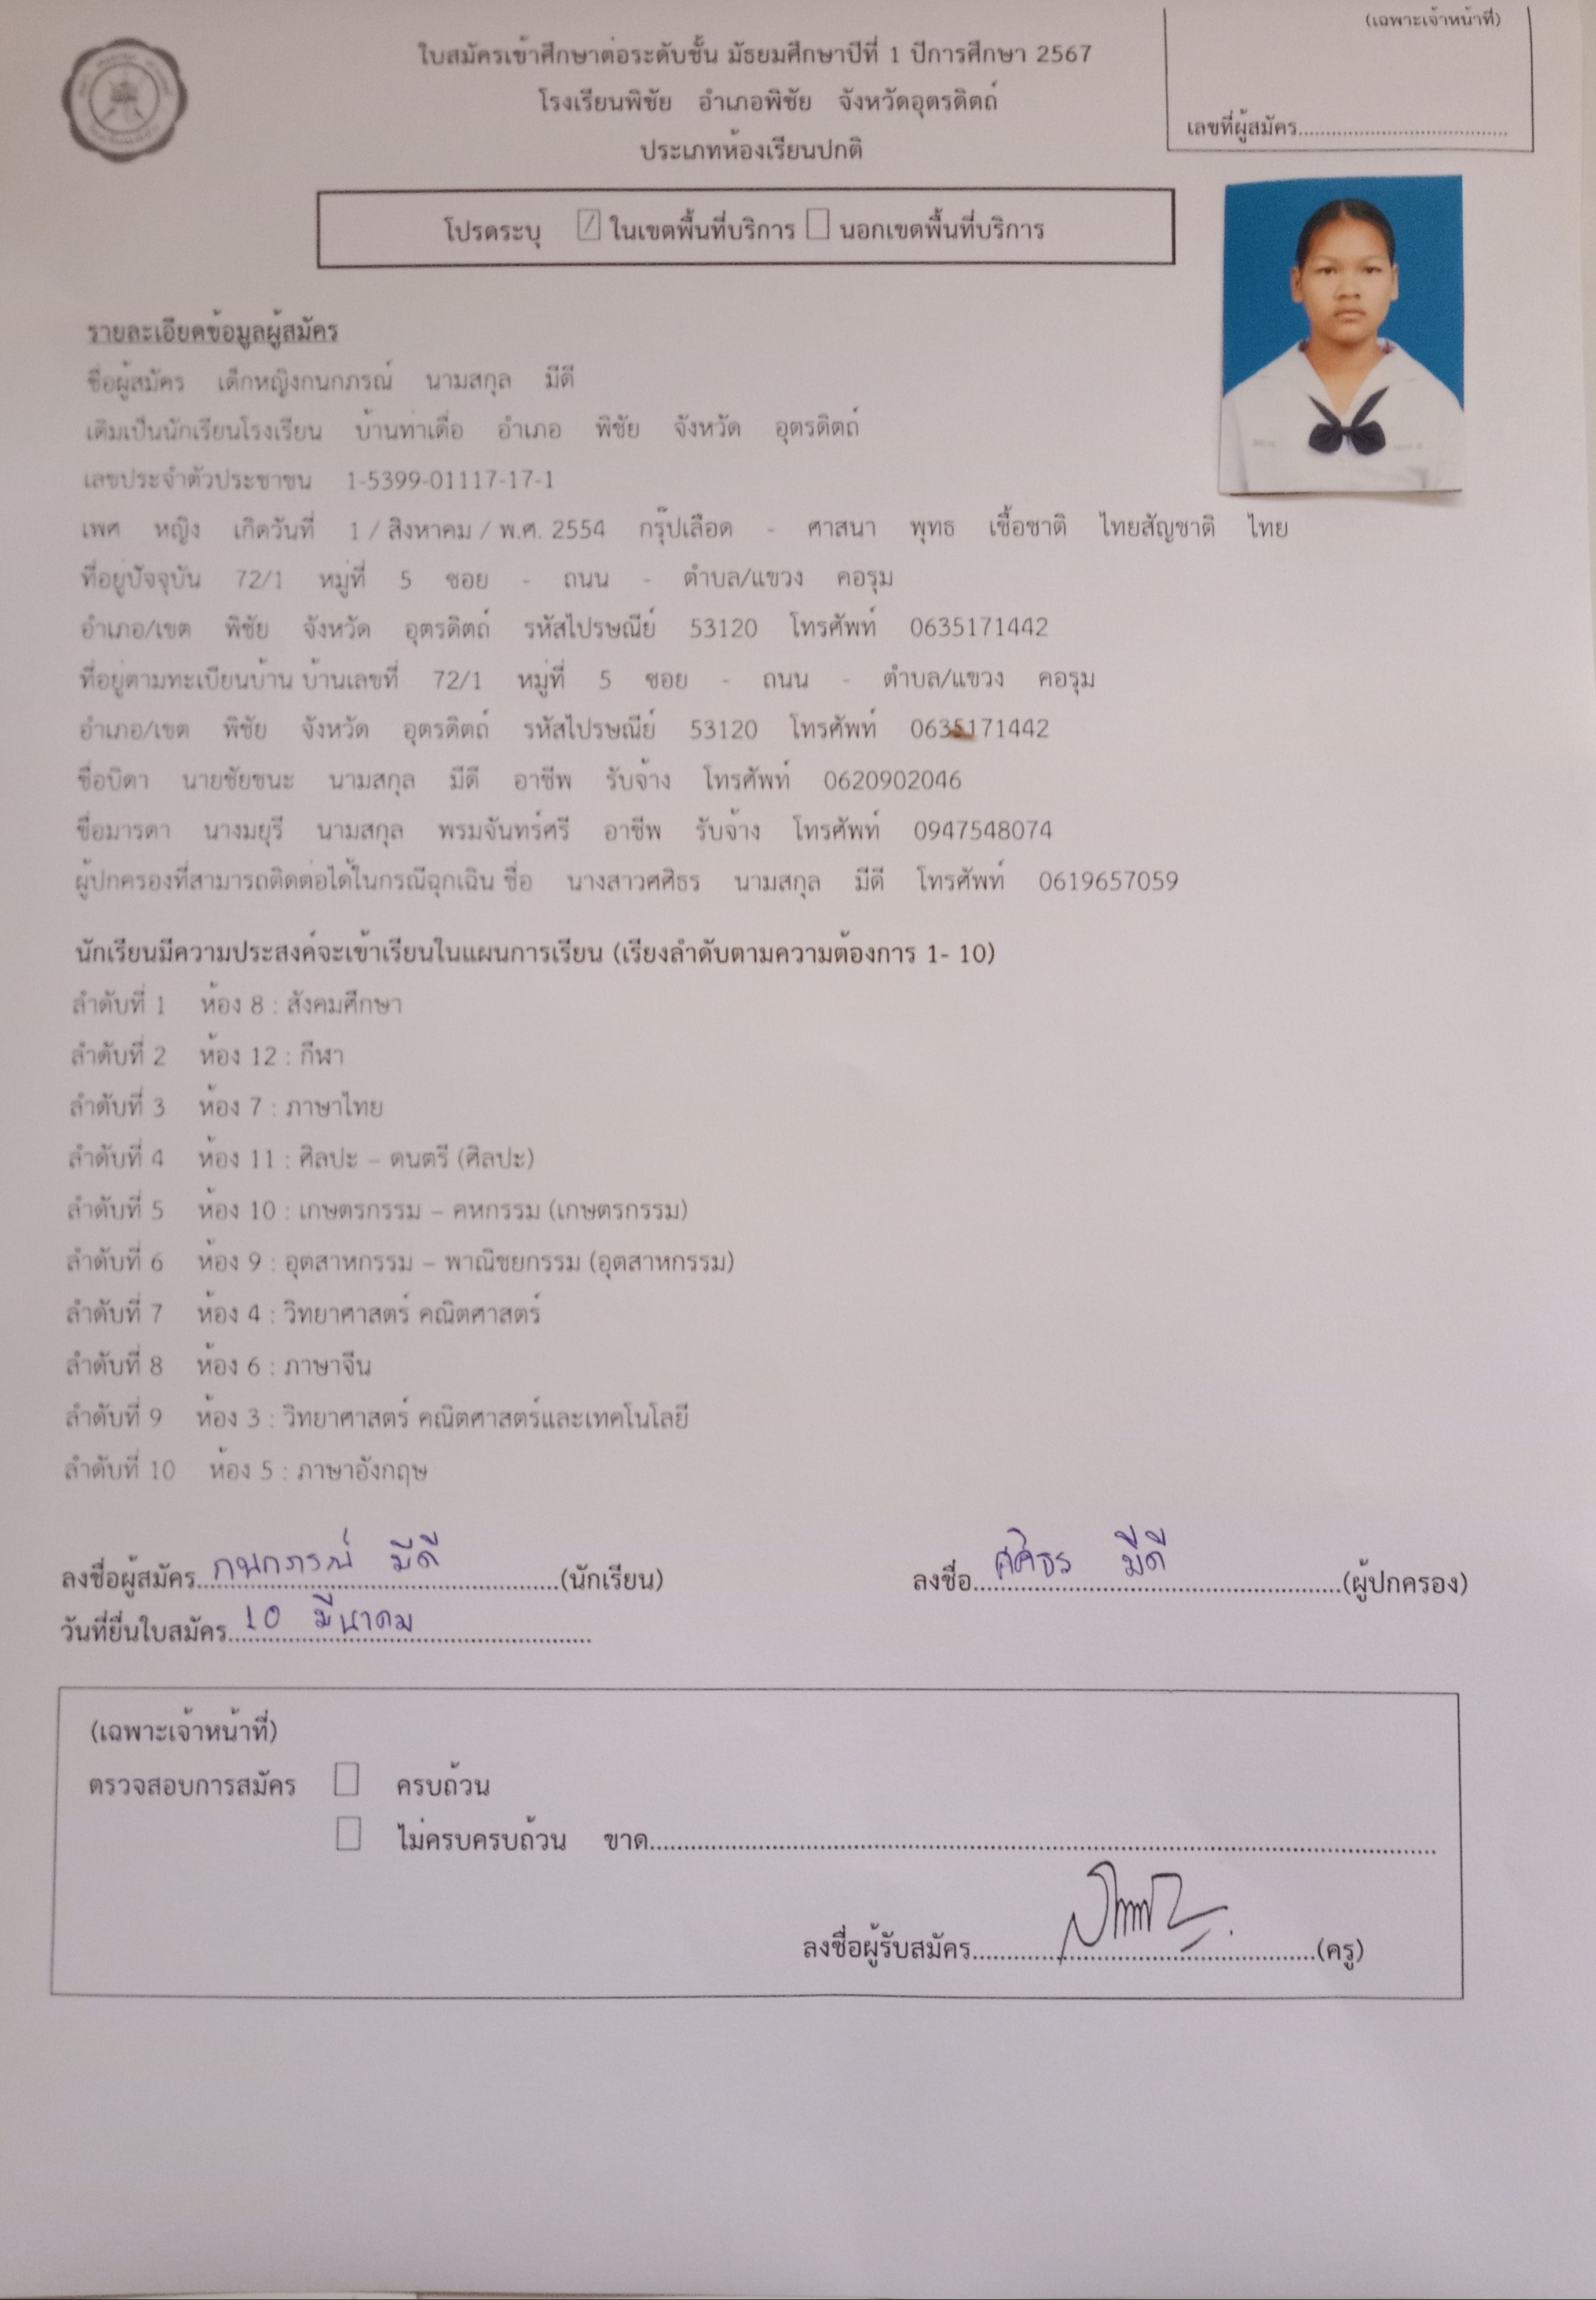 (เฉพาะเจ้าหน้าที่)
ใบสมัครเข้าศึกษาต่อระดับชั้น มัธยมศึกษาปีที่ 1 ปีการศึกษา 2567
โรงเรียนพิชัย อำเภอพิชัย จังหวัดอุตรดิตถ์
เลขที่ผู้สมัคร....................................
ประเภทห้องเรียนปกติ
โปรดระบุ ☑ ในเขตพื้นที่บริการ ☐ นอกเขตพื้นที่บริการ
รายละเอียดข้อมูลผู้สมัคร
ชื่อผู้สมัคร เด็กหญิงกนกภรณ์ นามสกุล มีดี
เดิมเป็นนักเรียนโรงเรียน บ้านท่าเดื่อ อำเภอ พิชัย จังหวัด อุตรดิตถ์
เลขประจำตัวประชาชน 1-5399-01117-17-1
เพศ หญิง เกิดวันที่ 1 / สิงหาคม / พ.ศ. 2554 กรุ๊ปเลือด - ศาสนา พุทธ เชื้อชาติ ไทยสัญชาติ ไทย
ที่อยู่ปัจจุบัน 72/1 หมู่ที่ 5 ซอย - ถนน - ตำบล/แขวง คอรุม
อำเภอ/เขต พิชัย จังหวัด อุตรดิตถ์ รหัสไปรษณีย์ 53120 โทรศัพท์ 0635171442
ที่อยู่ตามทะเบียนบ้าน บ้านเลขที่ 72/1 หมู่ที่ 5 ซอย - ถนน - ตำบล/แขวง คอรุม
อำเภอ/เขต พิชัย จังหวัด อุตรดิตถ์ รหัสไปรษณีย์ 53120 โทรศัพท์ 0635171442
ชื่อบิดา นายชัยชนะ นามสกุล มีดี อาชีพ รับจ้าง โทรศัพท์ 0620902046
ชื่อมารดา นางมยุรี นามสกุล พรมจันทร์ศรี อาชีพ รับจ้าง โทรศัพท์ 0947548074
ผู้ปกครองที่สามารถติดต่อได้ในกรณีฉุกเฉิน ชื่อ นางสาวศศิธร นามสกุล มีดี โทรศัพท์ 0619657059
นักเรียนมีความประสงค์จะเข้าเรียนในแผนการเรียน (เรียงลำดับตามความต้องการ 1- 10)
ลำดับที่ 1 ห้อง 8 : สังคมศึกษา
ลำดับที่ 2 ห้อง 12 : กีฬา
ลำดับที่ 3 ห้อง 7 : ภาษาไทย
ลำดับที่ 4 ห้อง 11 : ศิลปะ – ดนตรี (ศิลปะ)
ลำดับที่ 5 ห้อง 10 : เกษตรกรรม – คหกรรม (เกษตรกรรม)
ลำดับที่ 6 ห้อง 9 : อุตสาหกรรม – พาณิชยกรรม (อุตสาหกรรม)
ลำดับที่ 7 ห้อง 4 : วิทยาศาสตร์ คณิตศาสตร์
ลำดับที่ 8 ห้อง 6 : ภาษาจีน
ลำดับที่ 9 ห้อง 3 : วิทยาศาสตร์ คณิตศาสตร์และเทคโนโลยี
ลำดับที่ 10 ห้อง 5 : ภาษาอังกฤษ
ลงชื่อผู้สมัคร กนกภรณ์ มีดี (นักเรียน) ลงชื่อ ศศิธร มีดี (ผู้ปกครอง)
วันที่ยื่นใบสมัคร 10 มีนาคม
(เฉพาะเจ้าหน้าที่)
ตรวจสอบการสมัคร ☐ ครบถ้วน
☐ ไม่ครบครบถ้วน ขาด....................................
ลงชื่อผู้รับสมัคร....................................(ครู)